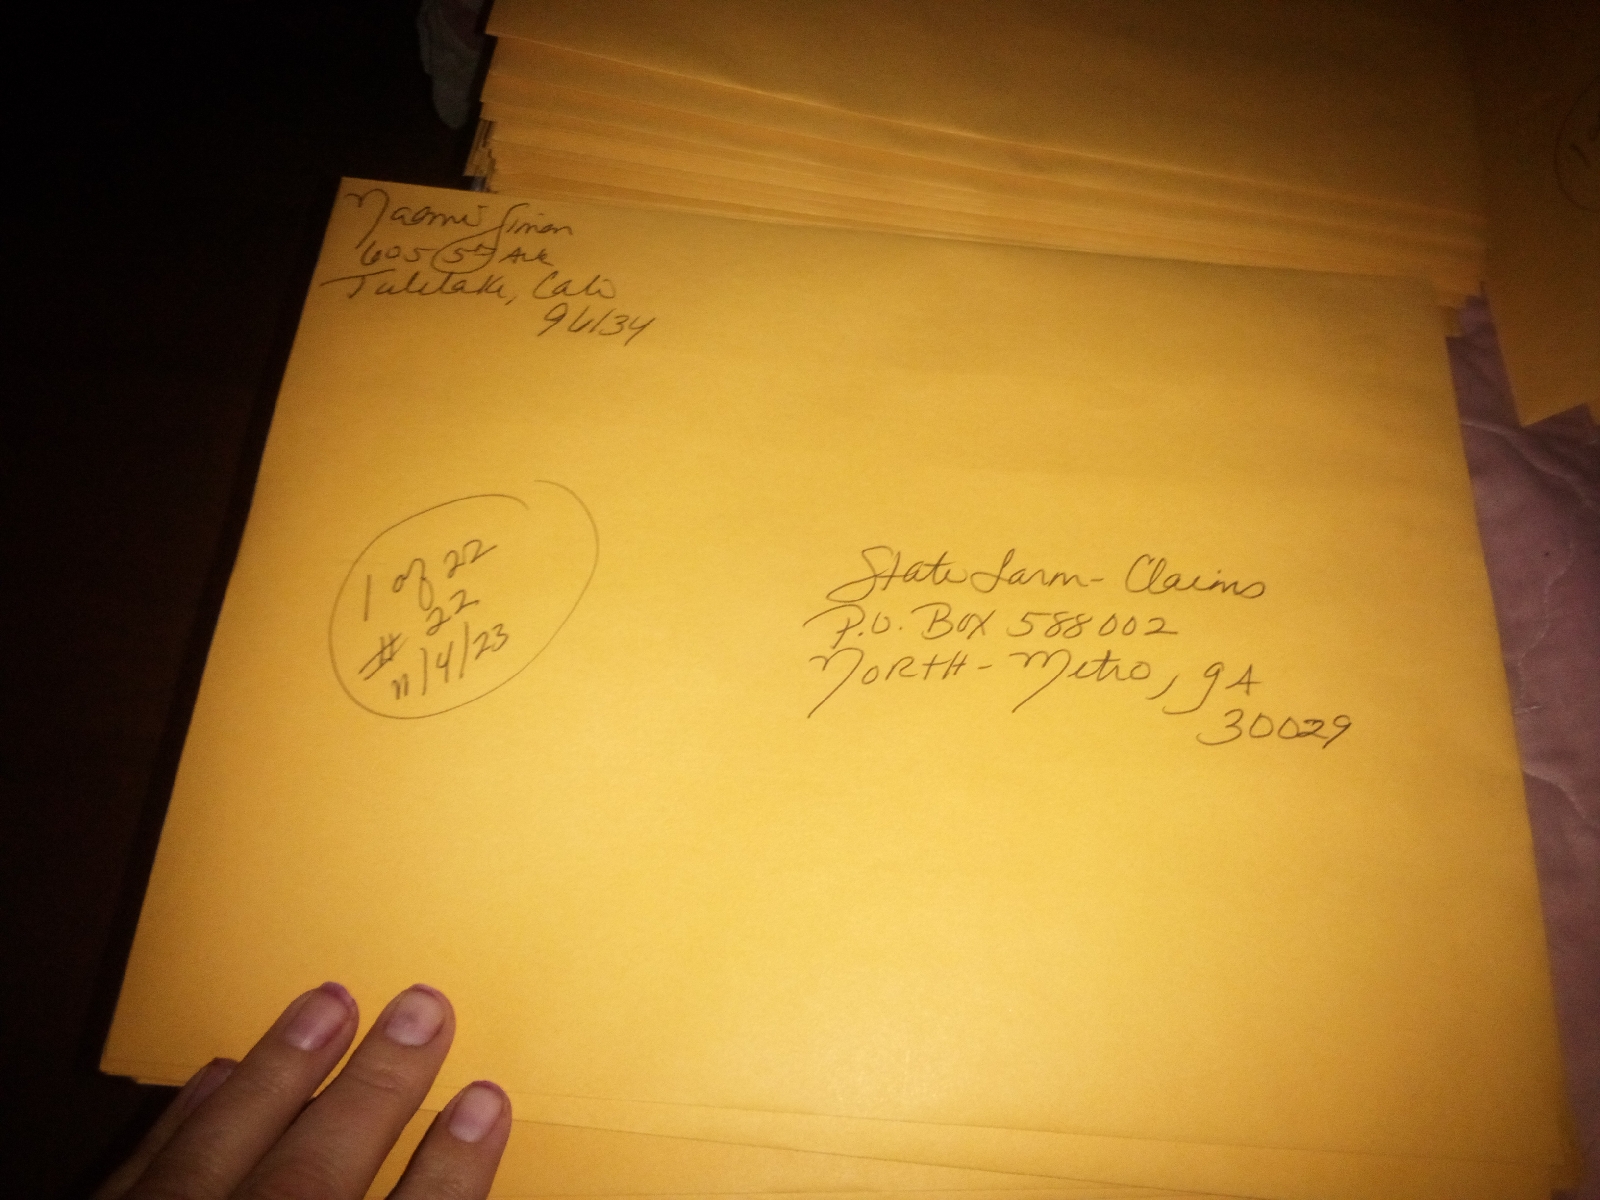 Naomi Simon
605 5th Ave
Tulelake, Cali
96134
1 of 22
# 22
11/4/23
State Farm - Claims
P.O. Box 588002
North - Metro, GA
30029